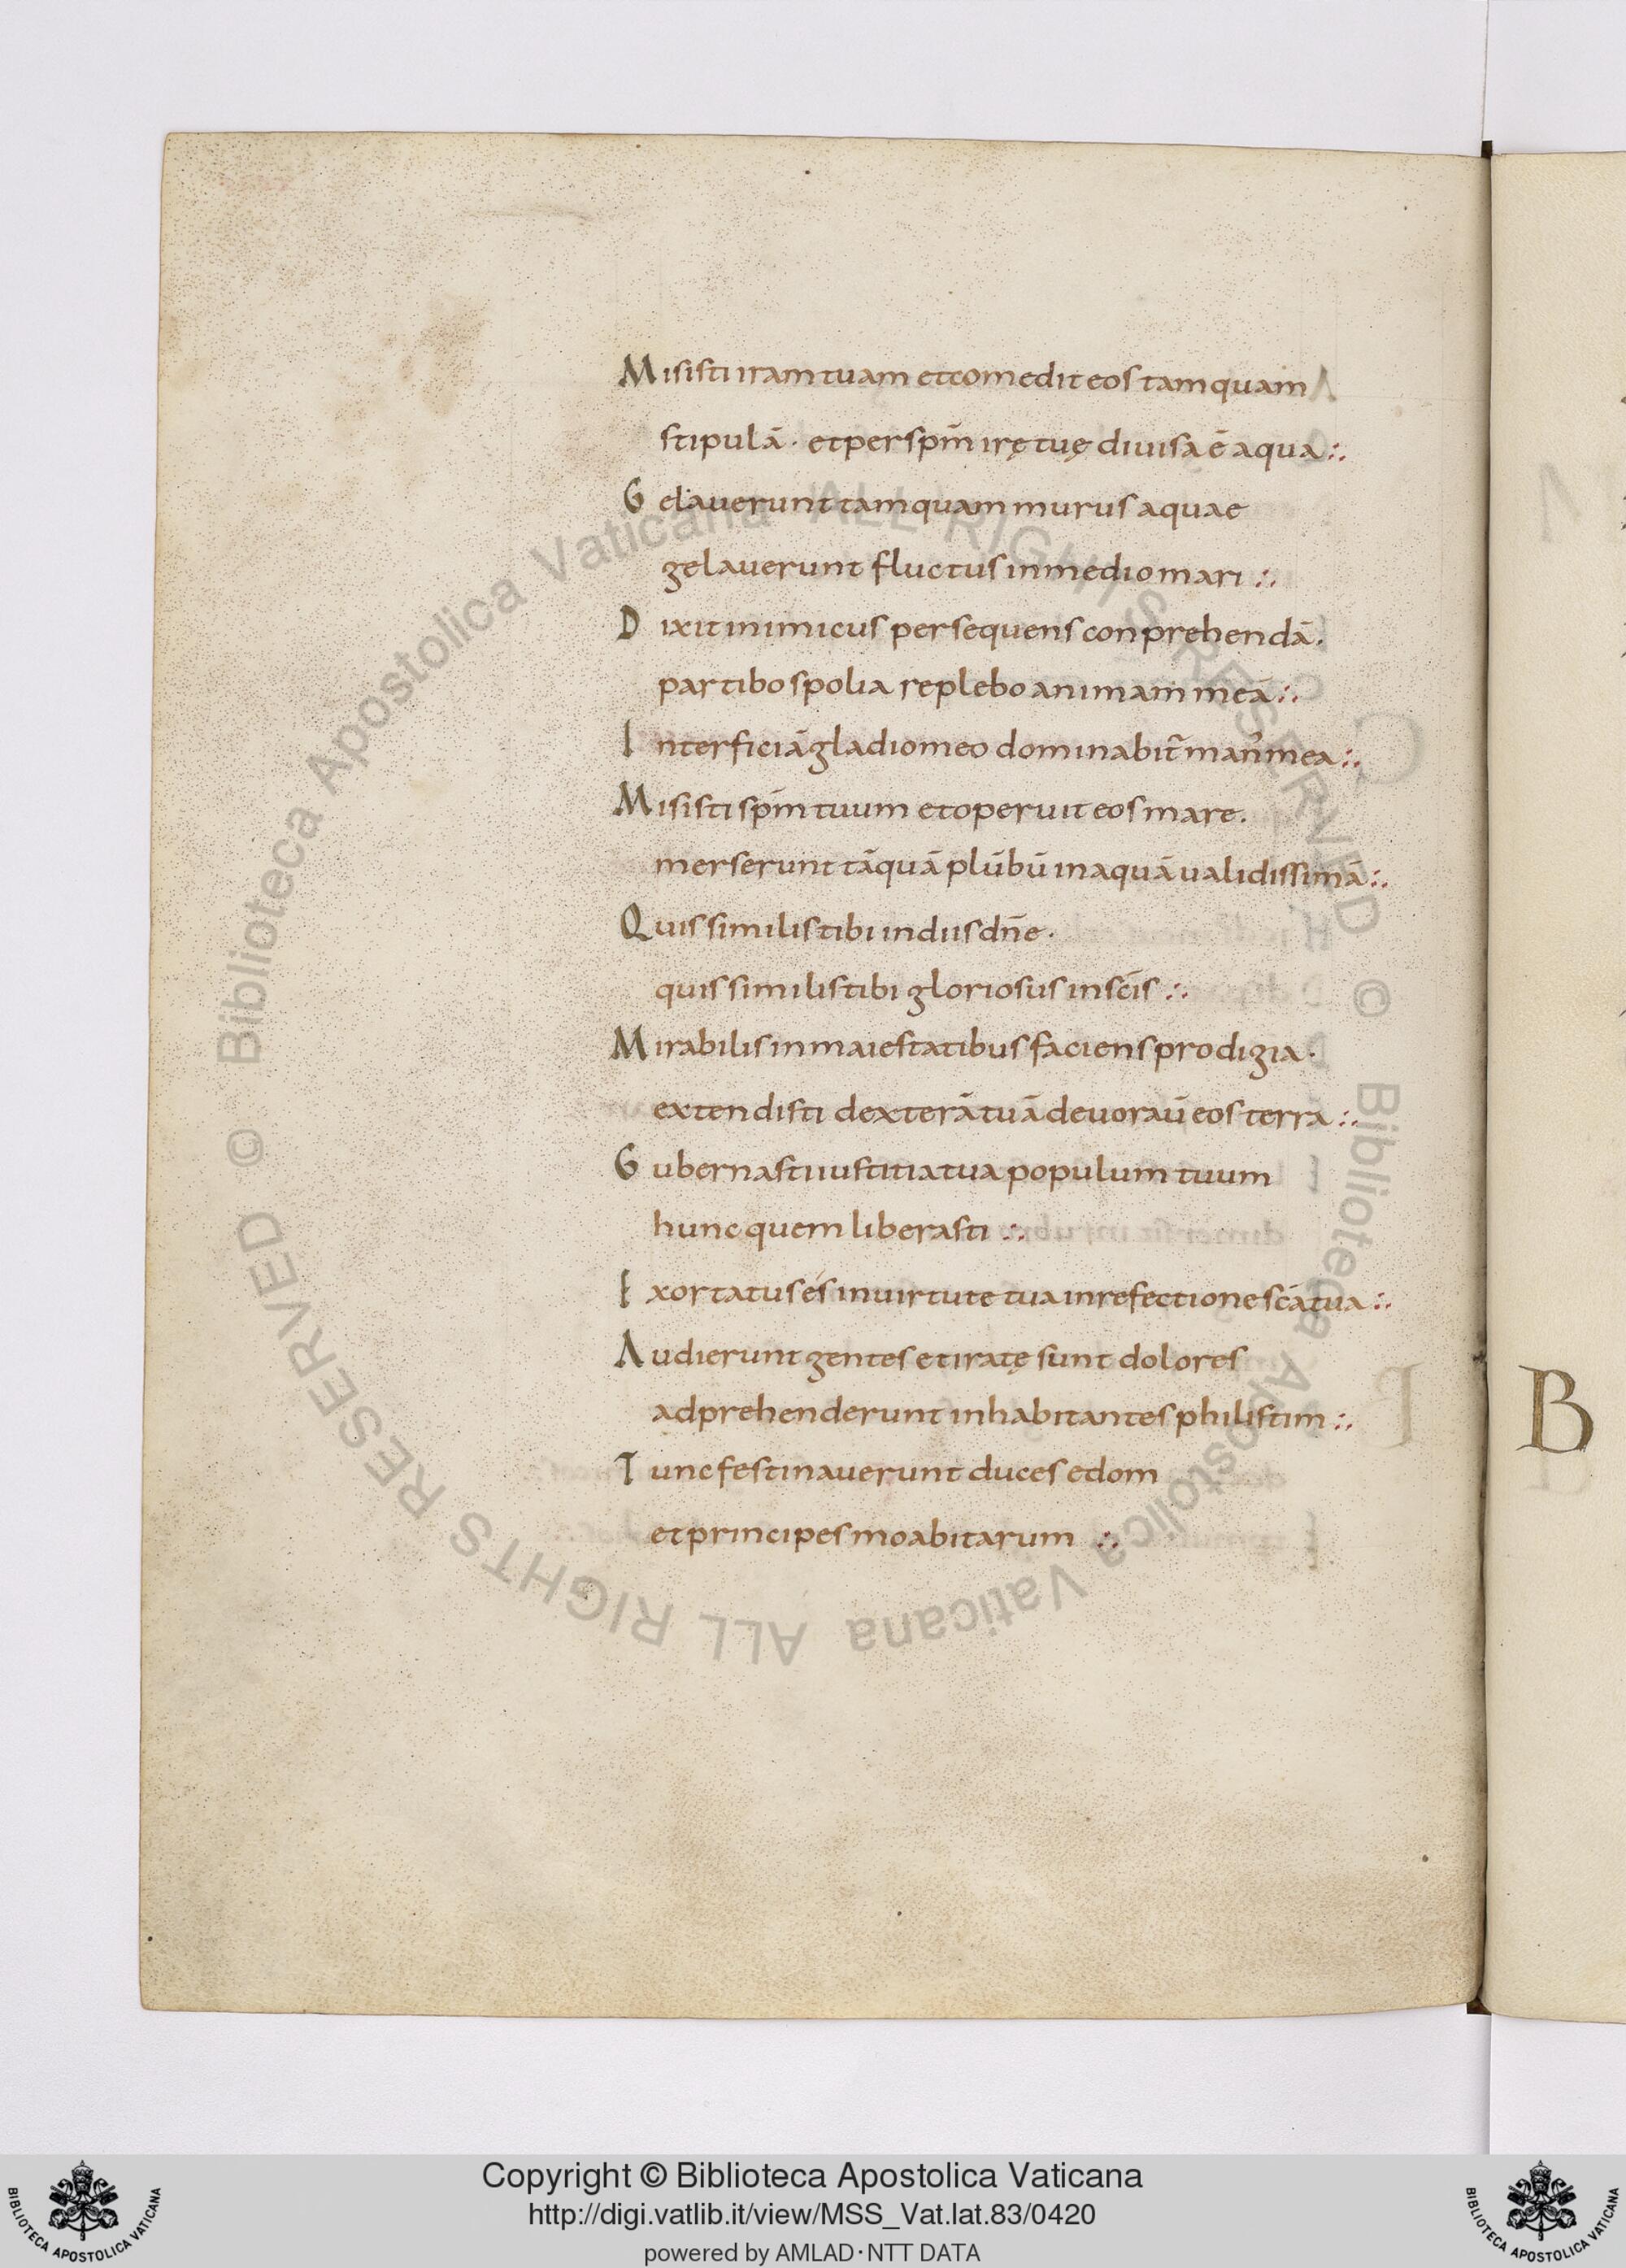 Misisti iram tuam et comedit eos tamquam
stipulā· et per spm̄ irę tuę diuisa ē aqua:·
Gelauerunt tamquam murus aquae
gelauerunt fluctus in medio mari:·
Dixit inimicus persequens conprehendā·
partibo spolia replebo animam meā:·
Interficiā gladio meo dominabit̄ man᾽ mea:·
Misisti spm̄ tuum et operuit eos mare.
merserunt tāquā plūbū in aquā ualidissimā:·
Quis similis tibi in diis dn̄e·
quis similis tibi gloriosus in scīs:·
Mirabilis in maiestatibus faciens prodigia·
extendisti dexterā tuā deuorau̅ eos terra:·
Gubernasti iustitia tua populum tuum
hunc quem liberasti:·
Exortatus es in uirtute tua in refectione scā tua:·
Audierunt gentes et iratę sunt dolores
adprehenderunt inhabitantes philistim:·
Tunc festinauerunt duces edom
et principes moabitarum:·
B
© Biblioteca Apostolica Vaticana ALL RIGHTS RESERVED © Biblioteca Apostolica Vaticana ALL RIGHTS RESERVED
Copyright © Biblioteca Apostolica Vaticana
http://digi.vatlib.it/view/MSS_Vat.lat.83/0420
powered by AMLAD·NTT DATA
BIBLIOTECA APOSTOLICA VATICANA
BIBLIOTECA APOSTOLICA VATICANA